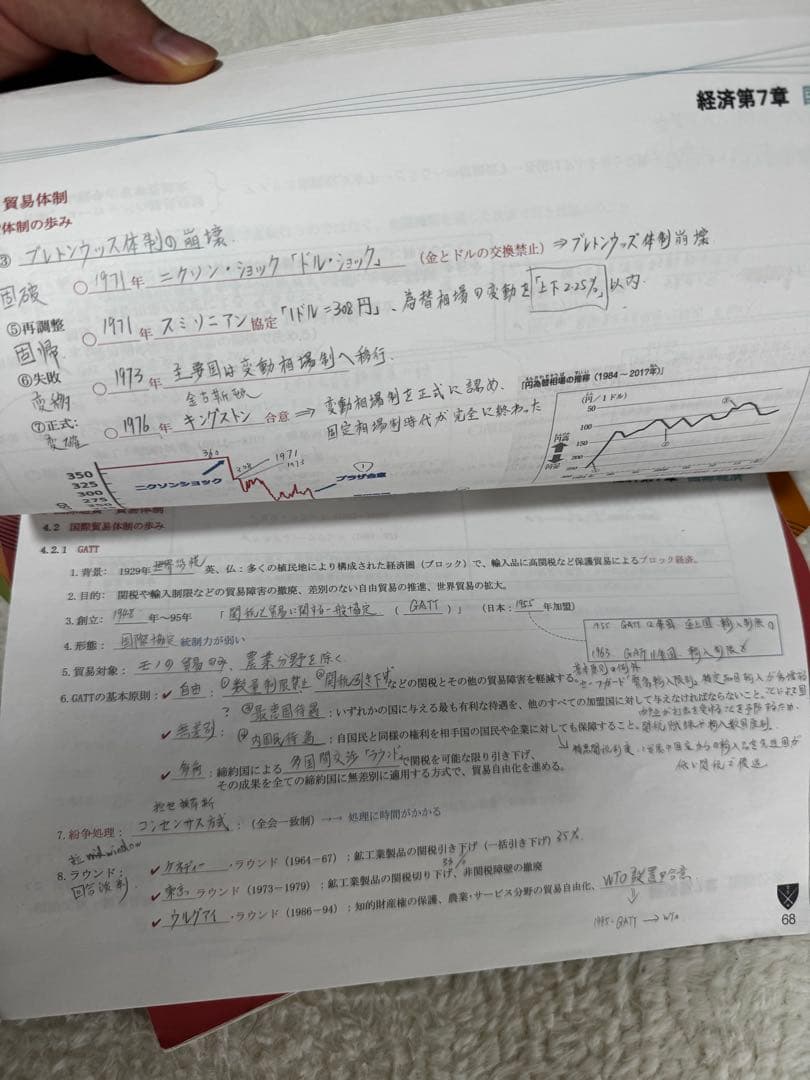 経済第7章
貿易体制
体制の歩み
③ ブレトンウッズ体制の崩壊.
固破 ○ 1971年 ニクソン・ショック「ドル・ショック」 (金とドルの交換禁止) ⇒ ブレトンウッズ体制崩壊
⑤再調整 ○ 1971年 スミソニアン協定「1ドル=308円」、為替相場の変動を「上下2.25%」以内.
固帰
⑥失敗 ○ 1973年 主要国は変動相場制へ移行.
⑦正式: ○ 1976年 キングストン合意 ⇒ 変動相場制を正式に認め、
固定相場制時代が完全に終わった
円為替相場の推移(1984~2017年)
(円/1ドル)
50
100
150
200
円高
円安
360
308
1971
1973
350
325
300
275
ニクソンショック
プラザ合意
4.2 国際貿易体制の歩み
4.2.1 GATT
1. 背景: 1929年世界恐慌 英、仏:多くの植民地により構成された経済圏(ブロック)で、輸入品に高関税など保護貿易によるブロック経済。
2. 目的: 関税や輸入制限などの貿易障害の撤廃、差別のない自由貿易の推進、世界貿易の拡大。
3. 創立: 1948年~95年 「関税と貿易に関する一般協定 (GATT)」 (日本:1955年加盟)
1955 GATT 12条国 輸入制限○
1963 GATT 11条国 輸入制限×
4. 形態: 国際協定 統制力が弱い
5. 貿易対象: モノの貿易のみ、農業分野を除く
6. GATTの基本原則: ✔ 自由: ①数量制限禁止 ②関税引き下げなどの関税とその他の貿易障害を軽減する。
基本原則の例外
"セーフガード「緊急輸入限制」特定品目輸入が急増する
? ③最恵国待遇: いずれかの国に与える最も有利な待遇を、他のすべての加盟国に対して与えなければならないこと。
✔ 無差別: ④内国民待遇: 自国民と同様の権利を相手国の国民や企業に対しても保障すること。
✔ 多角: 締約国による 多国間交渉「ラウンド」で関税を可能な限り引き下げ、
その成果を全ての締約国に無差別に適用する方式で、貿易自由化を進める。
7. 紛争処理: コンセンサス方式: (全会一致制) →→ 処理に時間がかかる
8. ラウンド: ✔ ケネディー・ラウンド(1964-67):鉱工業製品の関税引き下げ(一括引き下げ) 35%
✔ 東京 ラウンド(1973-1979):鉱工業製品の関税切り下げ、非関税障壁の撤廃
33%
✔ ウルグアイ・ラウンド(1986-94):知的財産権の保護、農業・サービス分野の貿易自由化、WTO設置を合意
1995. GATT → WTO
68